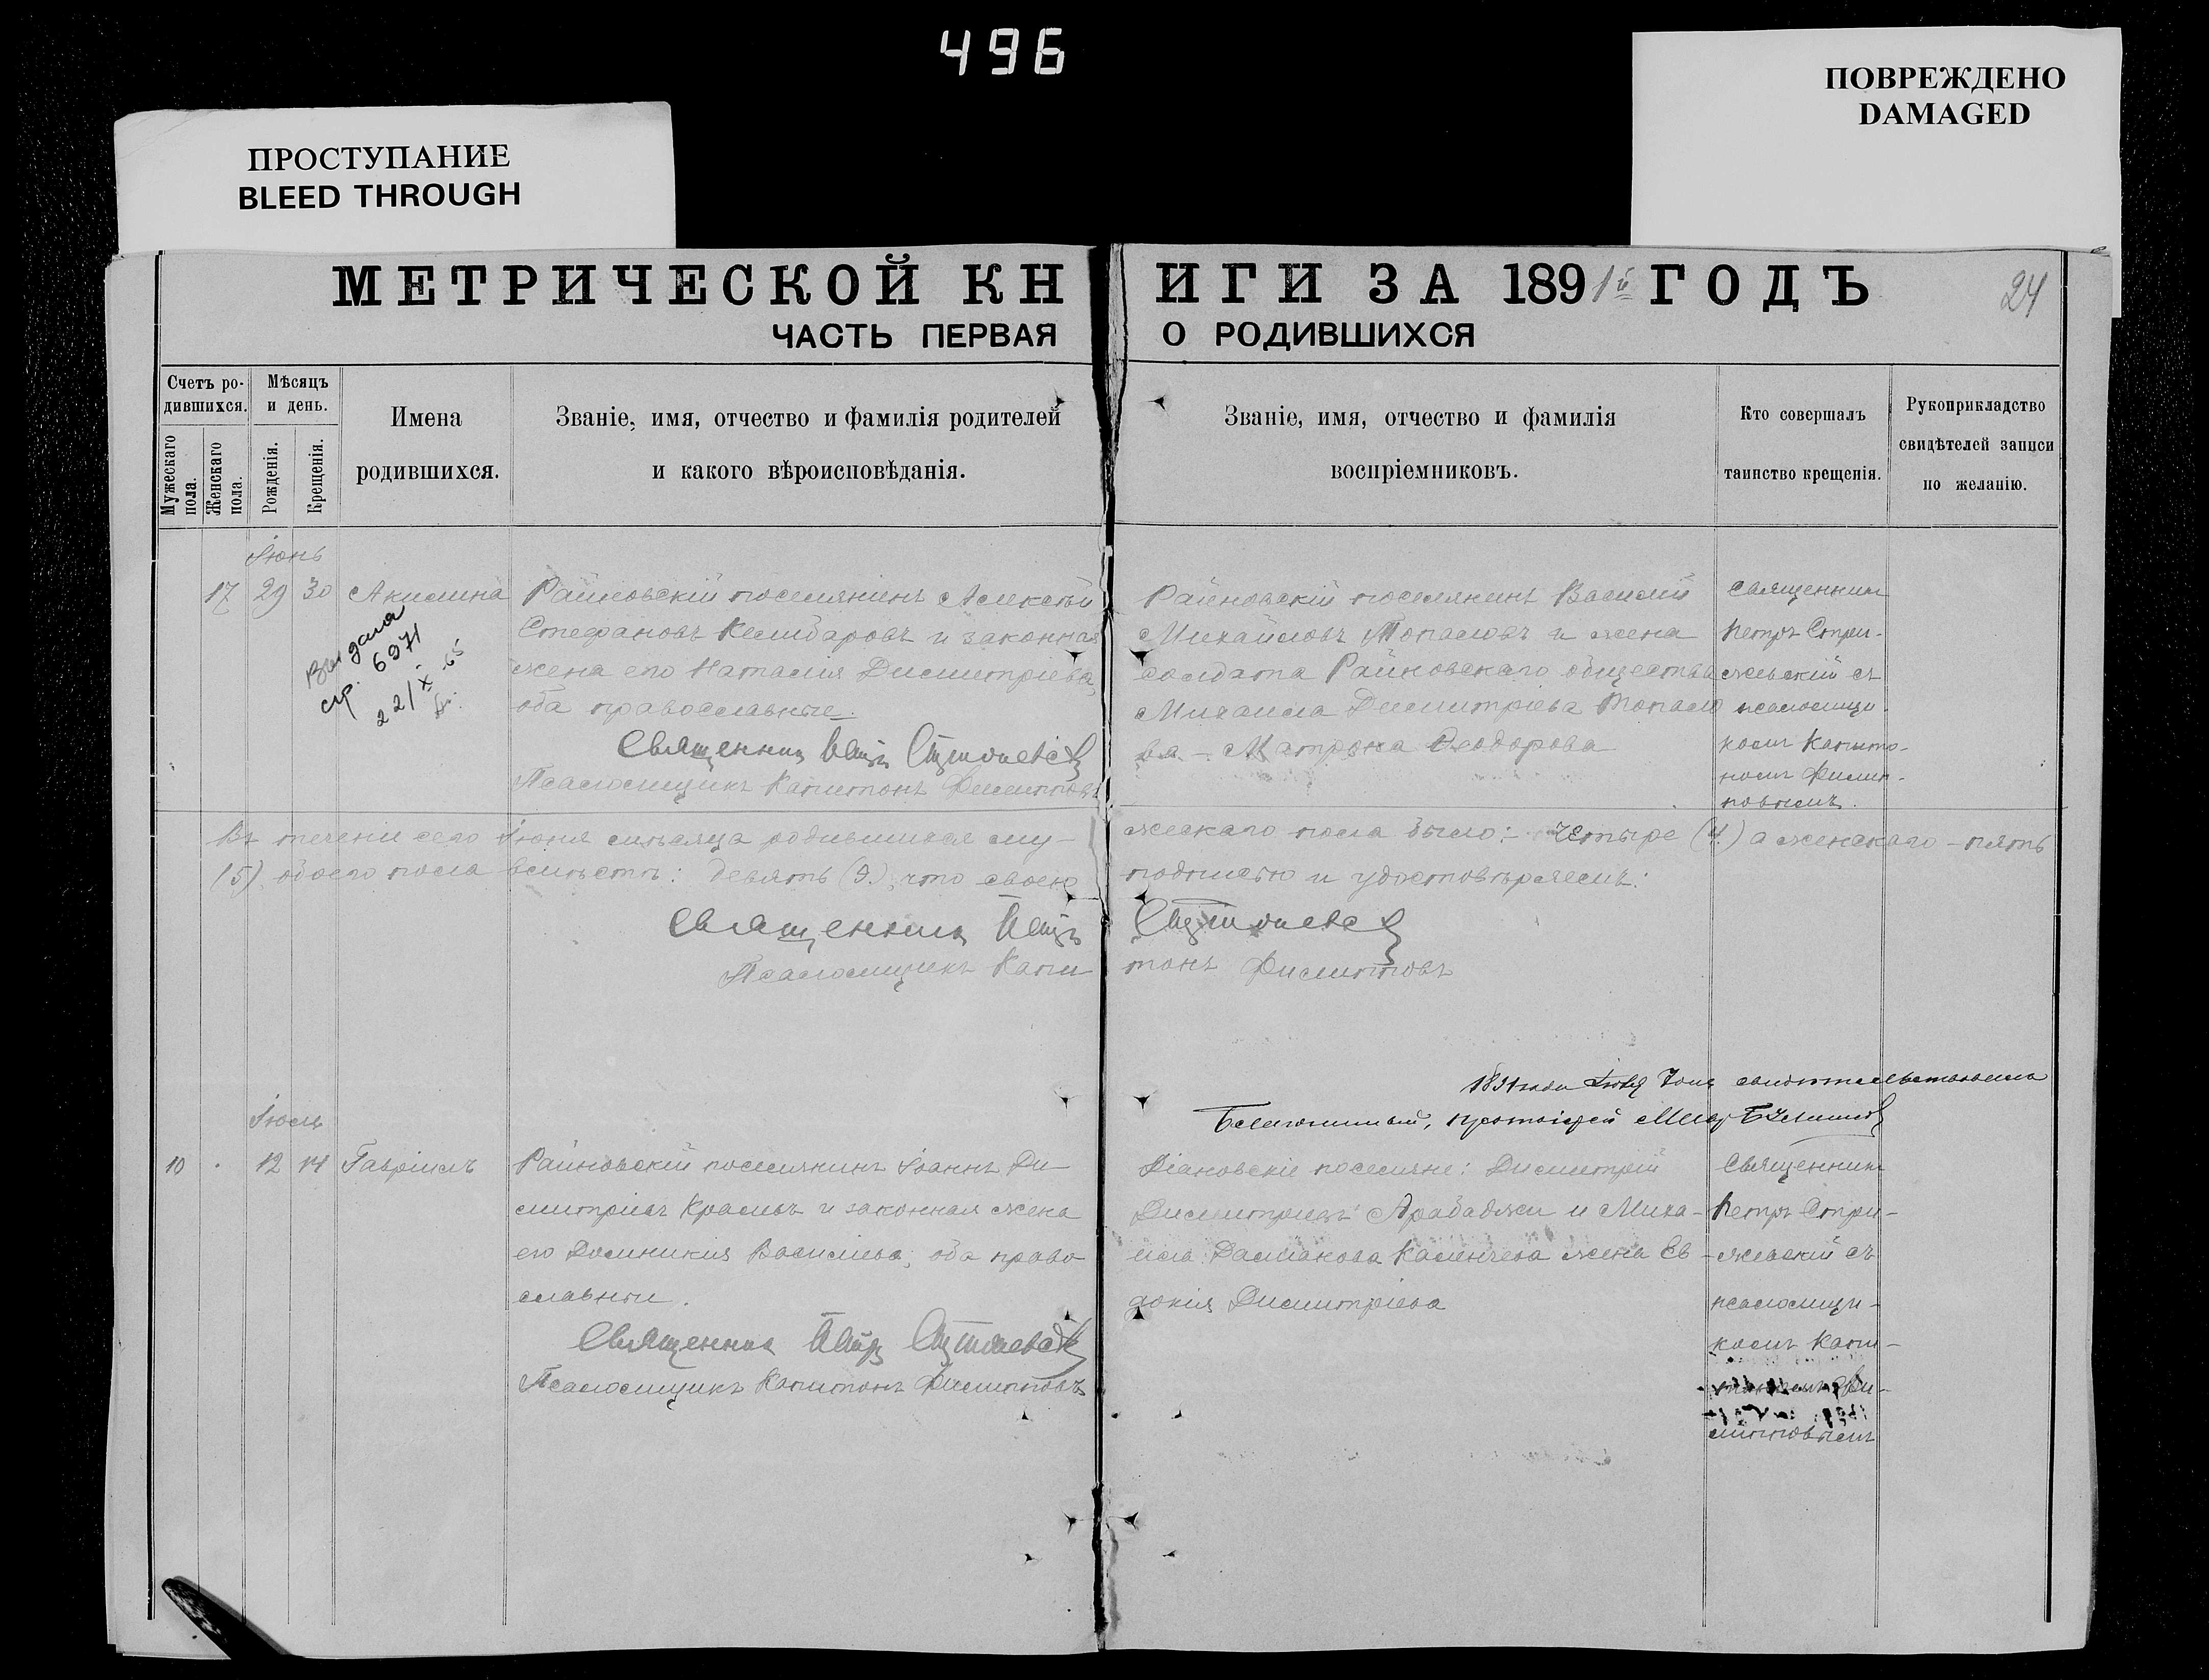 496
ПРОСТУПАНИЕ
BLEED THROUGH
ПОВРЕЖДЕНО
DAMAGED
МЕТРИЧЕСКОЙ КНИГИ ЗА 1891й ГОДЪ
24
ЧАСТЬ ПЕРВАЯ О РОДИВШИХСЯ
Счетъ родившихся.
Мужескаго пола.
Женскаго пола.
Мѣсяцъ и день.
Рожденія.
Крещенія.
Имена родившихся.
Званіе, имя, отчество и фамилія родителей
и какого вѣроисповѣданія.
Званіе, имя, отчество и фамилія
воспріемниковъ.
Кто совершалъ
таинство крещенія.
Рукоприкладство
свидѣтелей записи
по желанію.
Іюнь
17 29 30 Акилина
Райновскій поселянинъ Алексѣй
Стефановъ и законная
жена его Наталія Димитріева,
оба православные.
Священник Петр
Псаломщикъ Капитонъ Филипповъ
6971
22/X-65
Райновскій поселянинъ Василій
Михайловъ Топаловъ и жена
солдата Райновскаго общества
Михаила Димитріева Топало
ва - Матрона Ѳеодорова
Священник
Петръ Стри-
жевскій съ
псаломщи-
комъ Капито-
номъ Филип-
повымъ.
Въ теченіи сего Іюня мѣсяца родившихся му- жескаго пола было: четыре (4.) а женскаго - пять
(5), обоего пола вмѣстѣ: девять (9.), что своею подписью и удостовѣряемъ:
Священник Петр
Псаломщикъ Капи- тонъ Филипповъ
1891 года свидетельствовалъ
Благочинный, протоіерей
Іюль
10 12 14 Гавріилъ
Райновскій поселянинъ Іоаннъ Ди-
митріевъ и законная жена
его Домникия Василіева, оба право
славныи.
Священник Петр
Псаломщикъ Капитонъ Филипповъ
поселяне: Димитрій
Димитріевъ Арабаджи и Миха-
ила жена Ев-
докія Димитріева
Священник
Петръ Стри-
жевскій съ
псаломщи-
комъ Капи-
липповымъ